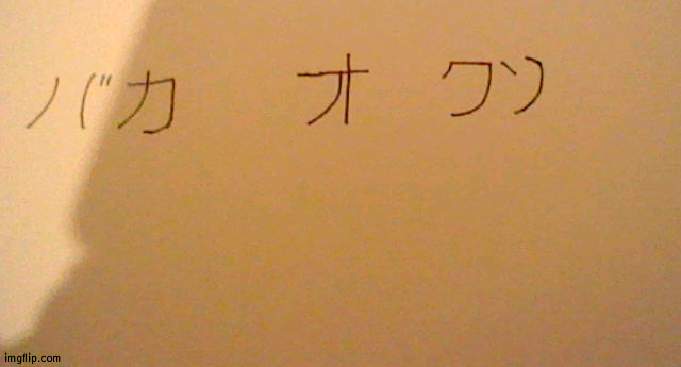 バカ オ クソ
imgflip.com